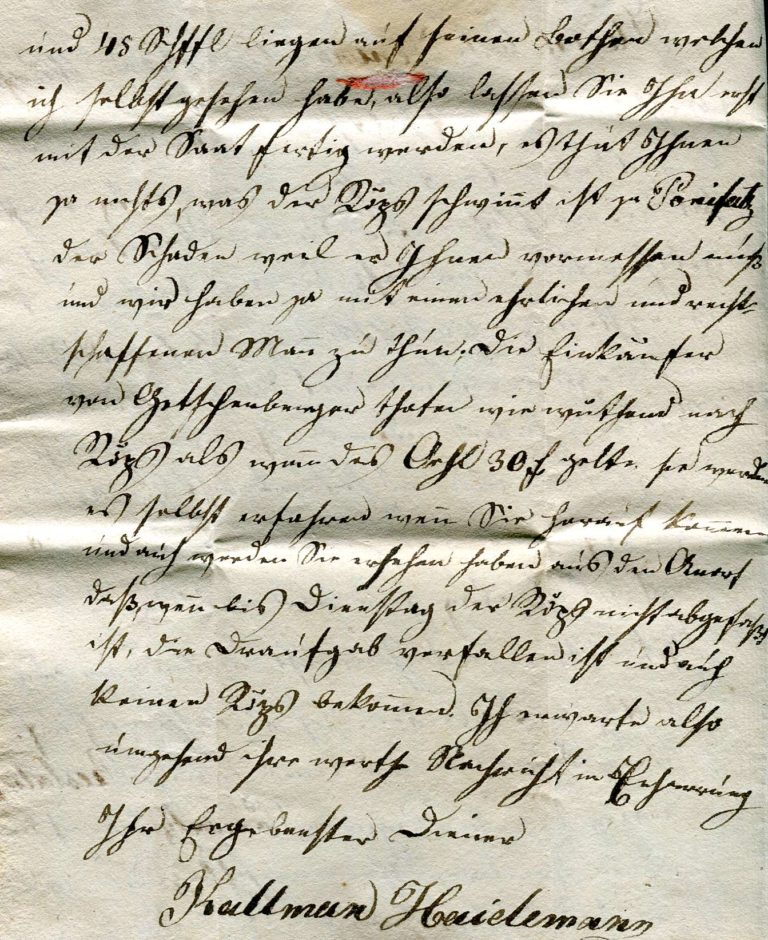 und 48 Schffl liegen auf seinen Bothen welchen
ich selbst gesehen habe, also lassen Sie Ihn erst
mit der Saat fertig werden, es thut Ihnen
ja nichts, was der Röps schwinnt ist ja
der Schaden weil er Ihnen vormessen muß
und wir haben ja mit einen ehrlichen und recht-
schaffenen Mann zu thun. Die Einkäufer
von Getschenberger thaten wie wüthend nach
Röps als wenn des Oehl 30 f gelte. sie werden
es selbst erfahren wenn Sie herauf kommen
und auch werden Sie ersehen haben aus den
daß, wenn bis Dienstag der Röps nicht abgefaßt
ist, die Draufgab verfallen ist und auch
keinen Röps bekommen. Ich erwarte also
umgehend ihre werthe Nachricht in
Ihr Ergebenster Diener
Kallman Haidemann